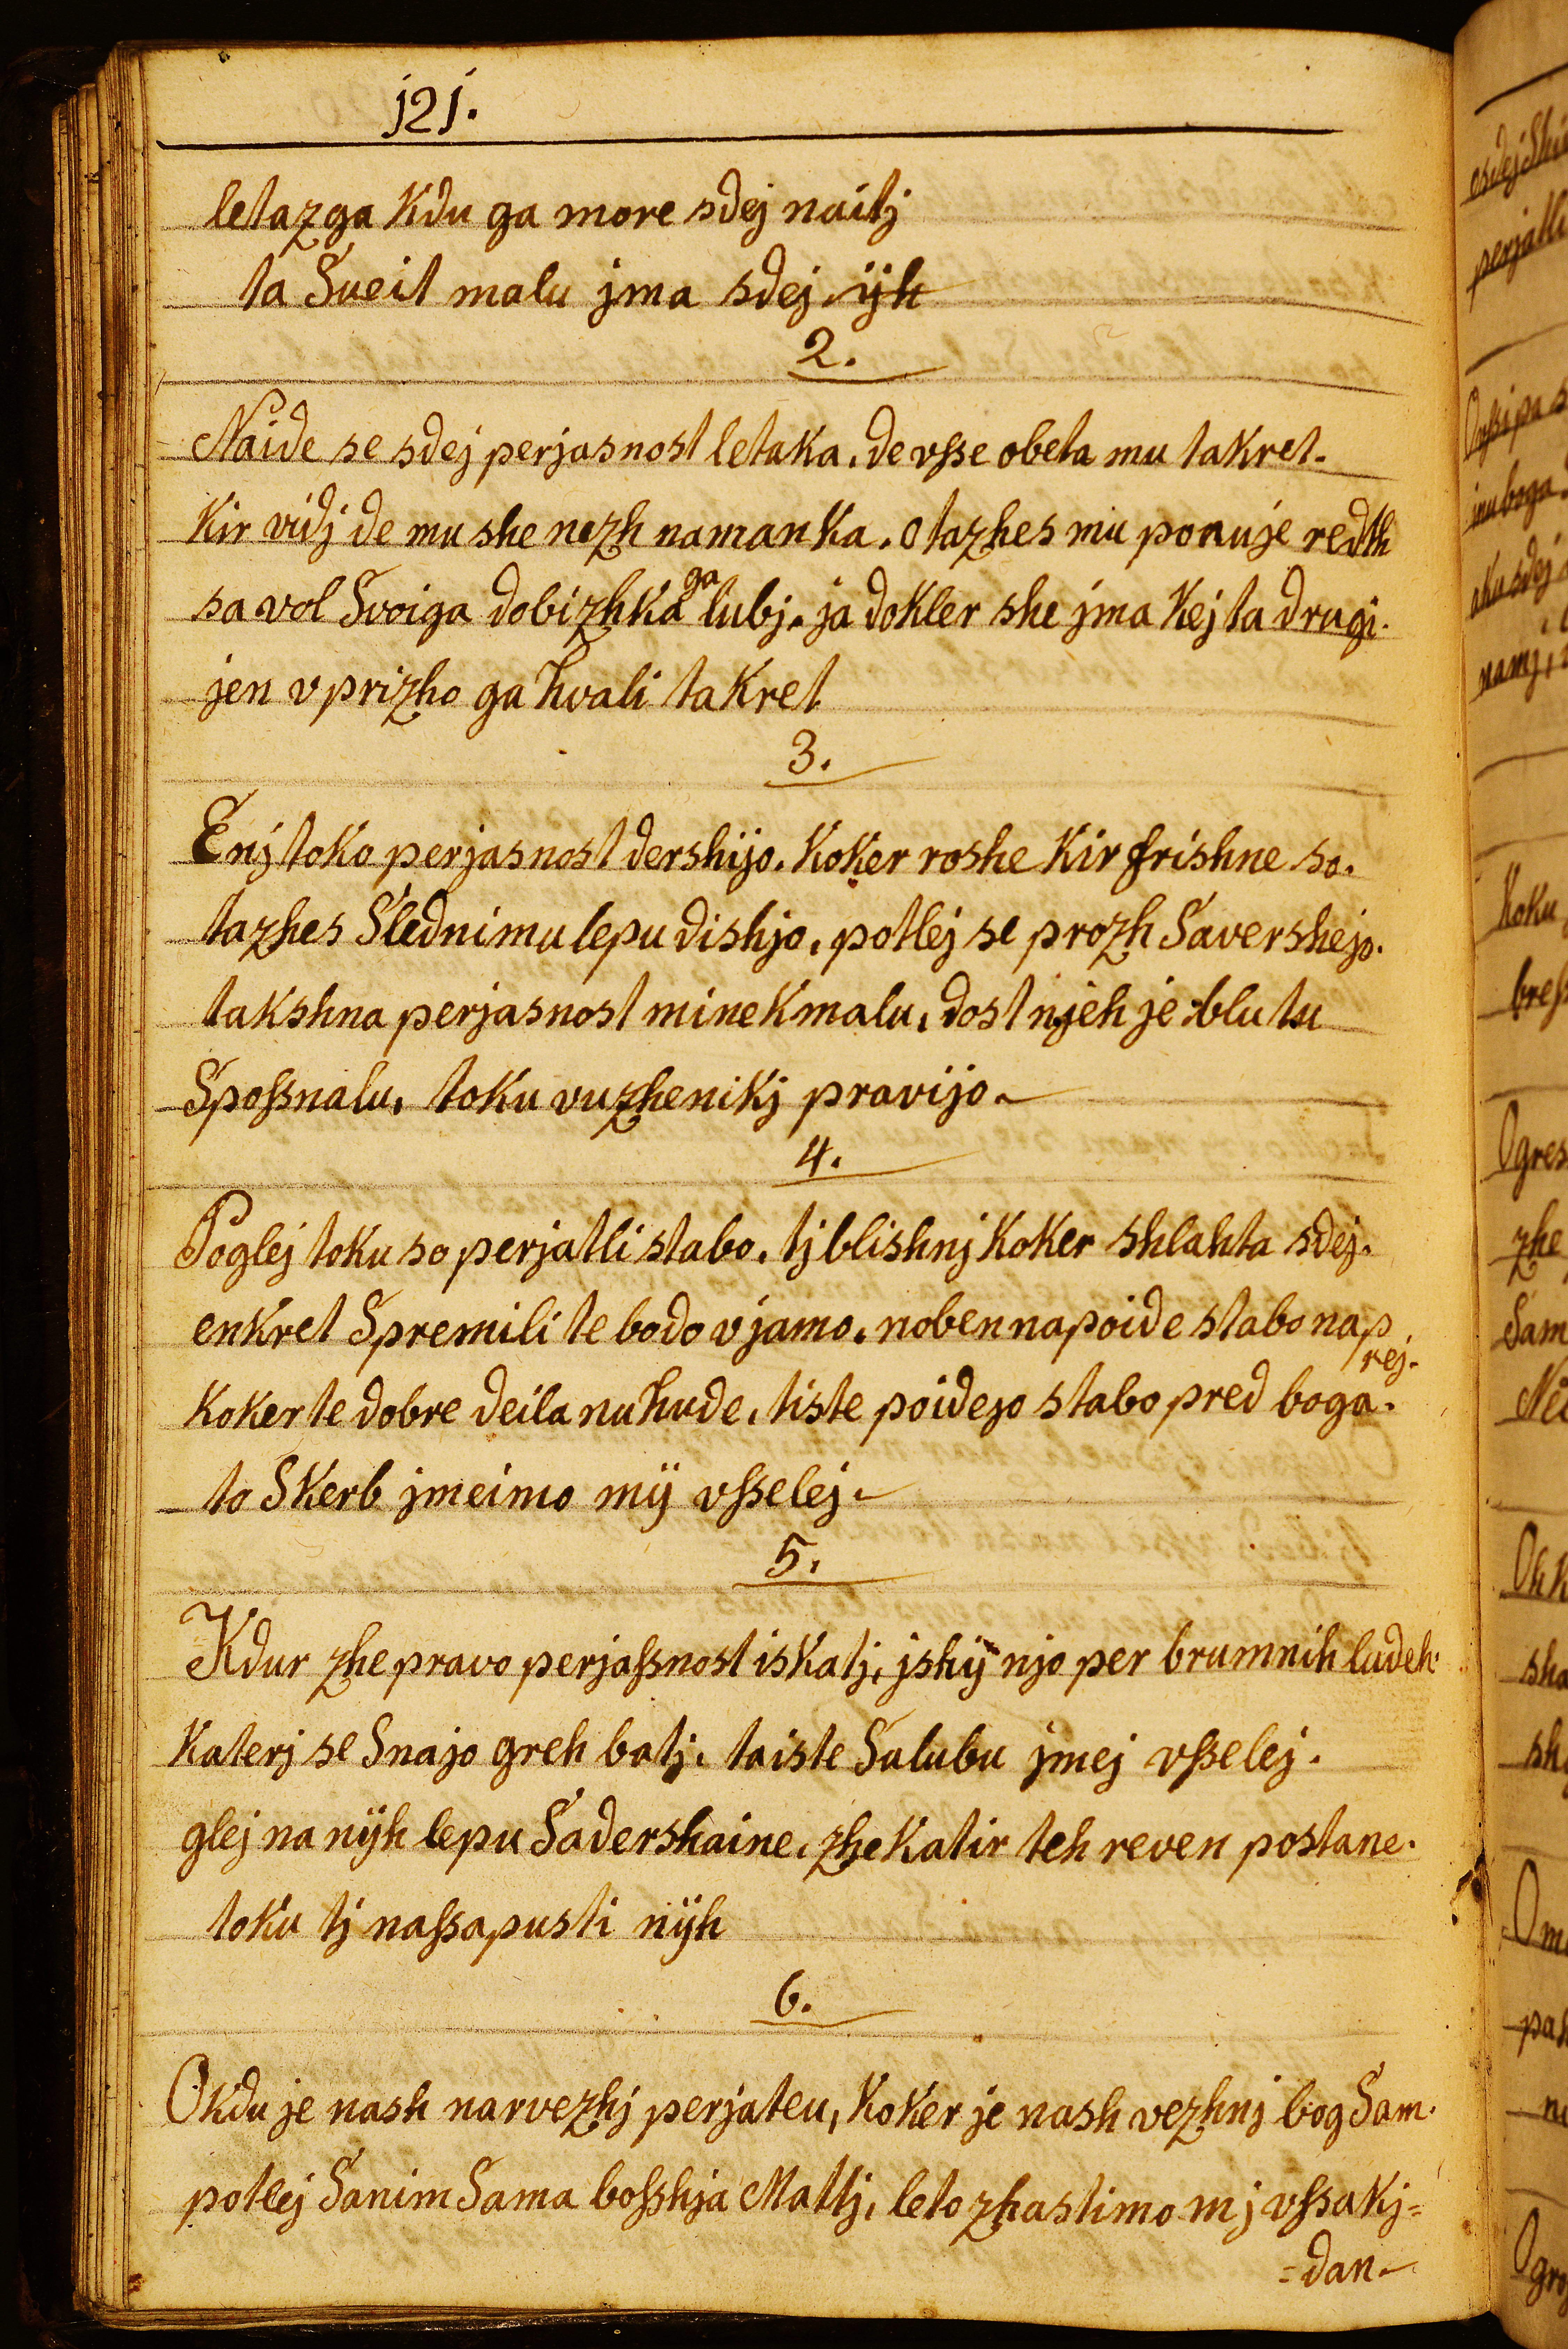 j2j.
letazga Kdu ga more sdej naitj
ta Sveit malu jma sdej ijh
2.
Naide se sdej perjasnost letaka. de vsse obeta mu takret.
Kir vidj de mu she nezh namanka. otazhes mu ponuje redth
sa vol Svoiga dobizhka ga lubj. ja dokler she jma Kej ta drugi.
jen vprizho ga hvali takret
3.
Enj toko perjasnost dershijo. Koker roshe Kir frishne so.
tazhes Slednimu lepu dishjo, potlej se prozh Savershejo.
takshna perjasnost mine Kmalu, dost njeh je blu tu
Spossnalu, toku vuzhenikj pravijo.
4.
Poglej toku so perjatli stabo. tj blishnj Koker shlahta sdej.
enkret Spremili te bodo vjamo. noben napoide stabo nap
rej.
Koker te dobre deila nu hude, tiste poidejo stabo pred boga.
to Skerb jmeimo mÿ vsselej.
5.
Kdur zhe pravo perjassnost iskatj, jshÿ njo per brumnih ludeh.
Katerj se Snajo greh batj. taiste Salubu jmej vsselej.
glej na nÿh lepu Sadershaine, zhe Katir teh reven postane.
toku tj nassapusti nÿh
6.
Okdu je nash narvezhj perjateu, Koker je nash vezhnj bog Sam.
potlej Sanim Sama bosshja Mattj, leto zhastimo mj vssakj=
=dan.